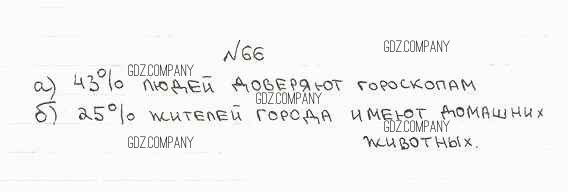 №66
GDZ.COMPANY
GDZ.COMPANY
а) 43% людей доверяют гороскопам
GDZ.COMPANY
б) 25% жителей города имеют домашних
GDZ.COMPANY
GDZ.COMPANY
животных.